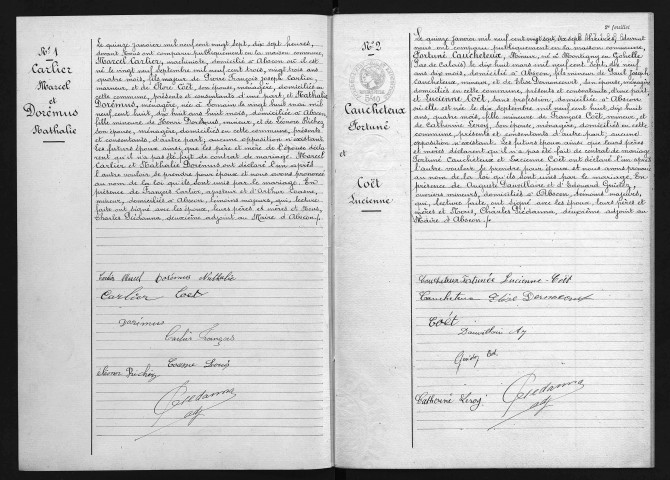 N° 1
Carlier
Marcel
et
Dorémus
Nathalie
Le quinze janvier mil neuf cent vingt sept, dix sept heures,
devant Nous ont comparu publiquement en la maison commune,
Marcel Carlier, machiniste, domicilié à Abscon où il est
né le vingt septembre mil neuf cent trois, vingt trois ans
quatre mois, fils majeur de Pierre François Joseph Carlier,
mineur, et de Flore Coët, son épouse, ménagère, domiciliés en
cette commune, présents et consentants d'une part, et Nathalie
Dorémus, ménagère, née à Somain le vingt huit mai mil
neuf cent huit, dix huit ans huit mois, domiciliée à Abscon,
fille mineure de Dorémus, mineur, et de Léonore Richez
son épouse, ménagère, domiciliés en cette commune, présents et
consentants, d'autre part, aucune opposition n'existant
les futurs époux ainsi que les père et mère de l'épouse décla
rent qu'il n'a pas été fait de contrat de mariage. Marcel
Carlier et Nathalie Dorémus ont déclaré l'un après
l'autre vouloir se prendre pour époux et nous avons prononcé
au nom de la loi qu'ils sont unis par le mariage. En
présence de François Carlier, et d'Arthur Cosme,
mineur, domiciliés à Abscon, témoins majeurs, qui, lecture
faite ont signé avec les époux, leurs pères et mères et Nous,
Charles Prédanna, deuxième adjoint au Maire d'Abscon.
Carlier Marcel Dorémus Nathalie
Carlier Coët
Dorémus
Carlier François
Cosme
Richez
Predanna
adj
2e feuillet
N° 2
Caucheteux
Fortuné
et
Coët
Lucienne
Le quinze janvier mil neuf cent vingt sept, dix sept heures devant
nous ont comparu publiquement en la maison commune,
Fortuné Caucheteux, mineur, né à Montigny en Gohelle
Pas de Calais le mil neuf cent sept, dix neuf
ans dix mois, domicilié à Abscon, fils mineur de Paul Joseph
Caucheteux, mineur, et de Elise son épouse, ménagère
domiciliés en cette commune, présents et consentants, d'une part,
et Lucienne Coët, sans profession, domiciliée à Abscon
où elle est née le dix septembre mil neuf cent huit, dix huit
ans, quatre mois, fille mineure de François Coët, mineur, et
de Catherine Leroy, son épouse, ménagère, domiciliés en cette
commune, présents et consentants d'autre part; aucune
opposition n'existant. Les futurs époux ainsi que leurs pères
et mères déclarent qu'il n'a pas été fait de contrat de mariage
Fortuné Caucheteux et Lucienne Coët ont déclaré l'un après
l'autre vouloir se prendre pour époux et nous avons prononcé
au nom de la loi qu'ils sont unis par le mariage. En
présence de Auguste et d'Edouard
ouvriers mineurs, domiciliés à Abscon, témoins majeurs,
qui, lecture faite, ont signé avec les époux, leurs pères et
mères et Nous, Charles Prédanna, deuxième adjoint au
Maire d'Abscon.
Caucheteux Fortuné Lucienne Coët
Caucheteux Elise
Coët
Catherine Leroy
Predanna
adj